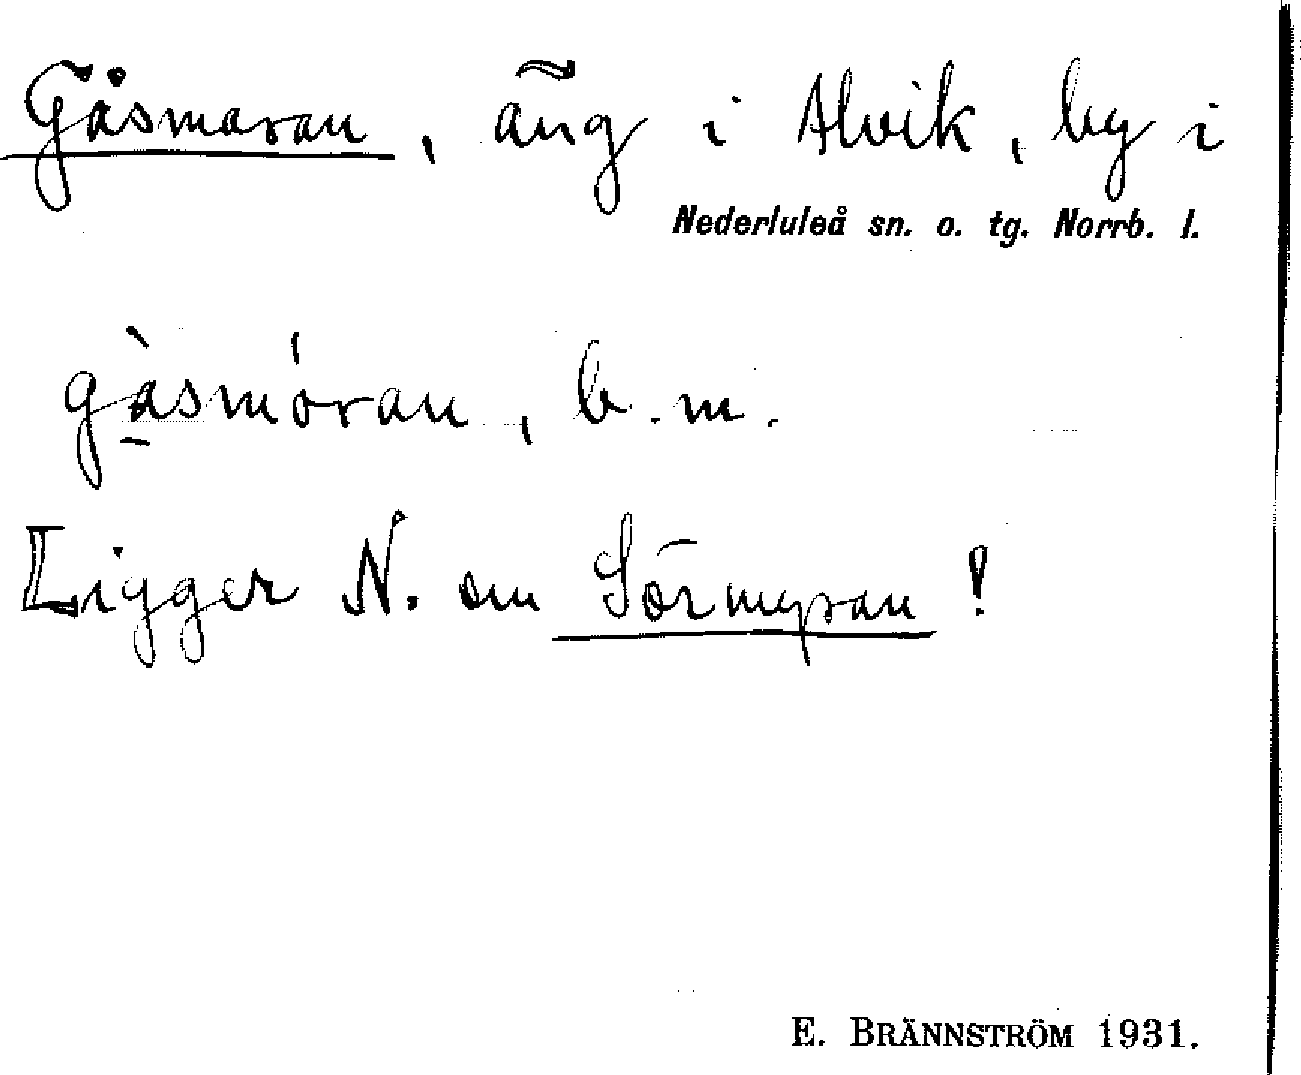 Gåsmaran, äng i Alvik, by i
Nederluleå sn. o. tg. Norrb. l.
gàsmóran, b. m.
Ligger N. om Sörmyran!
E. BRÄNNSTRÖM 1931.